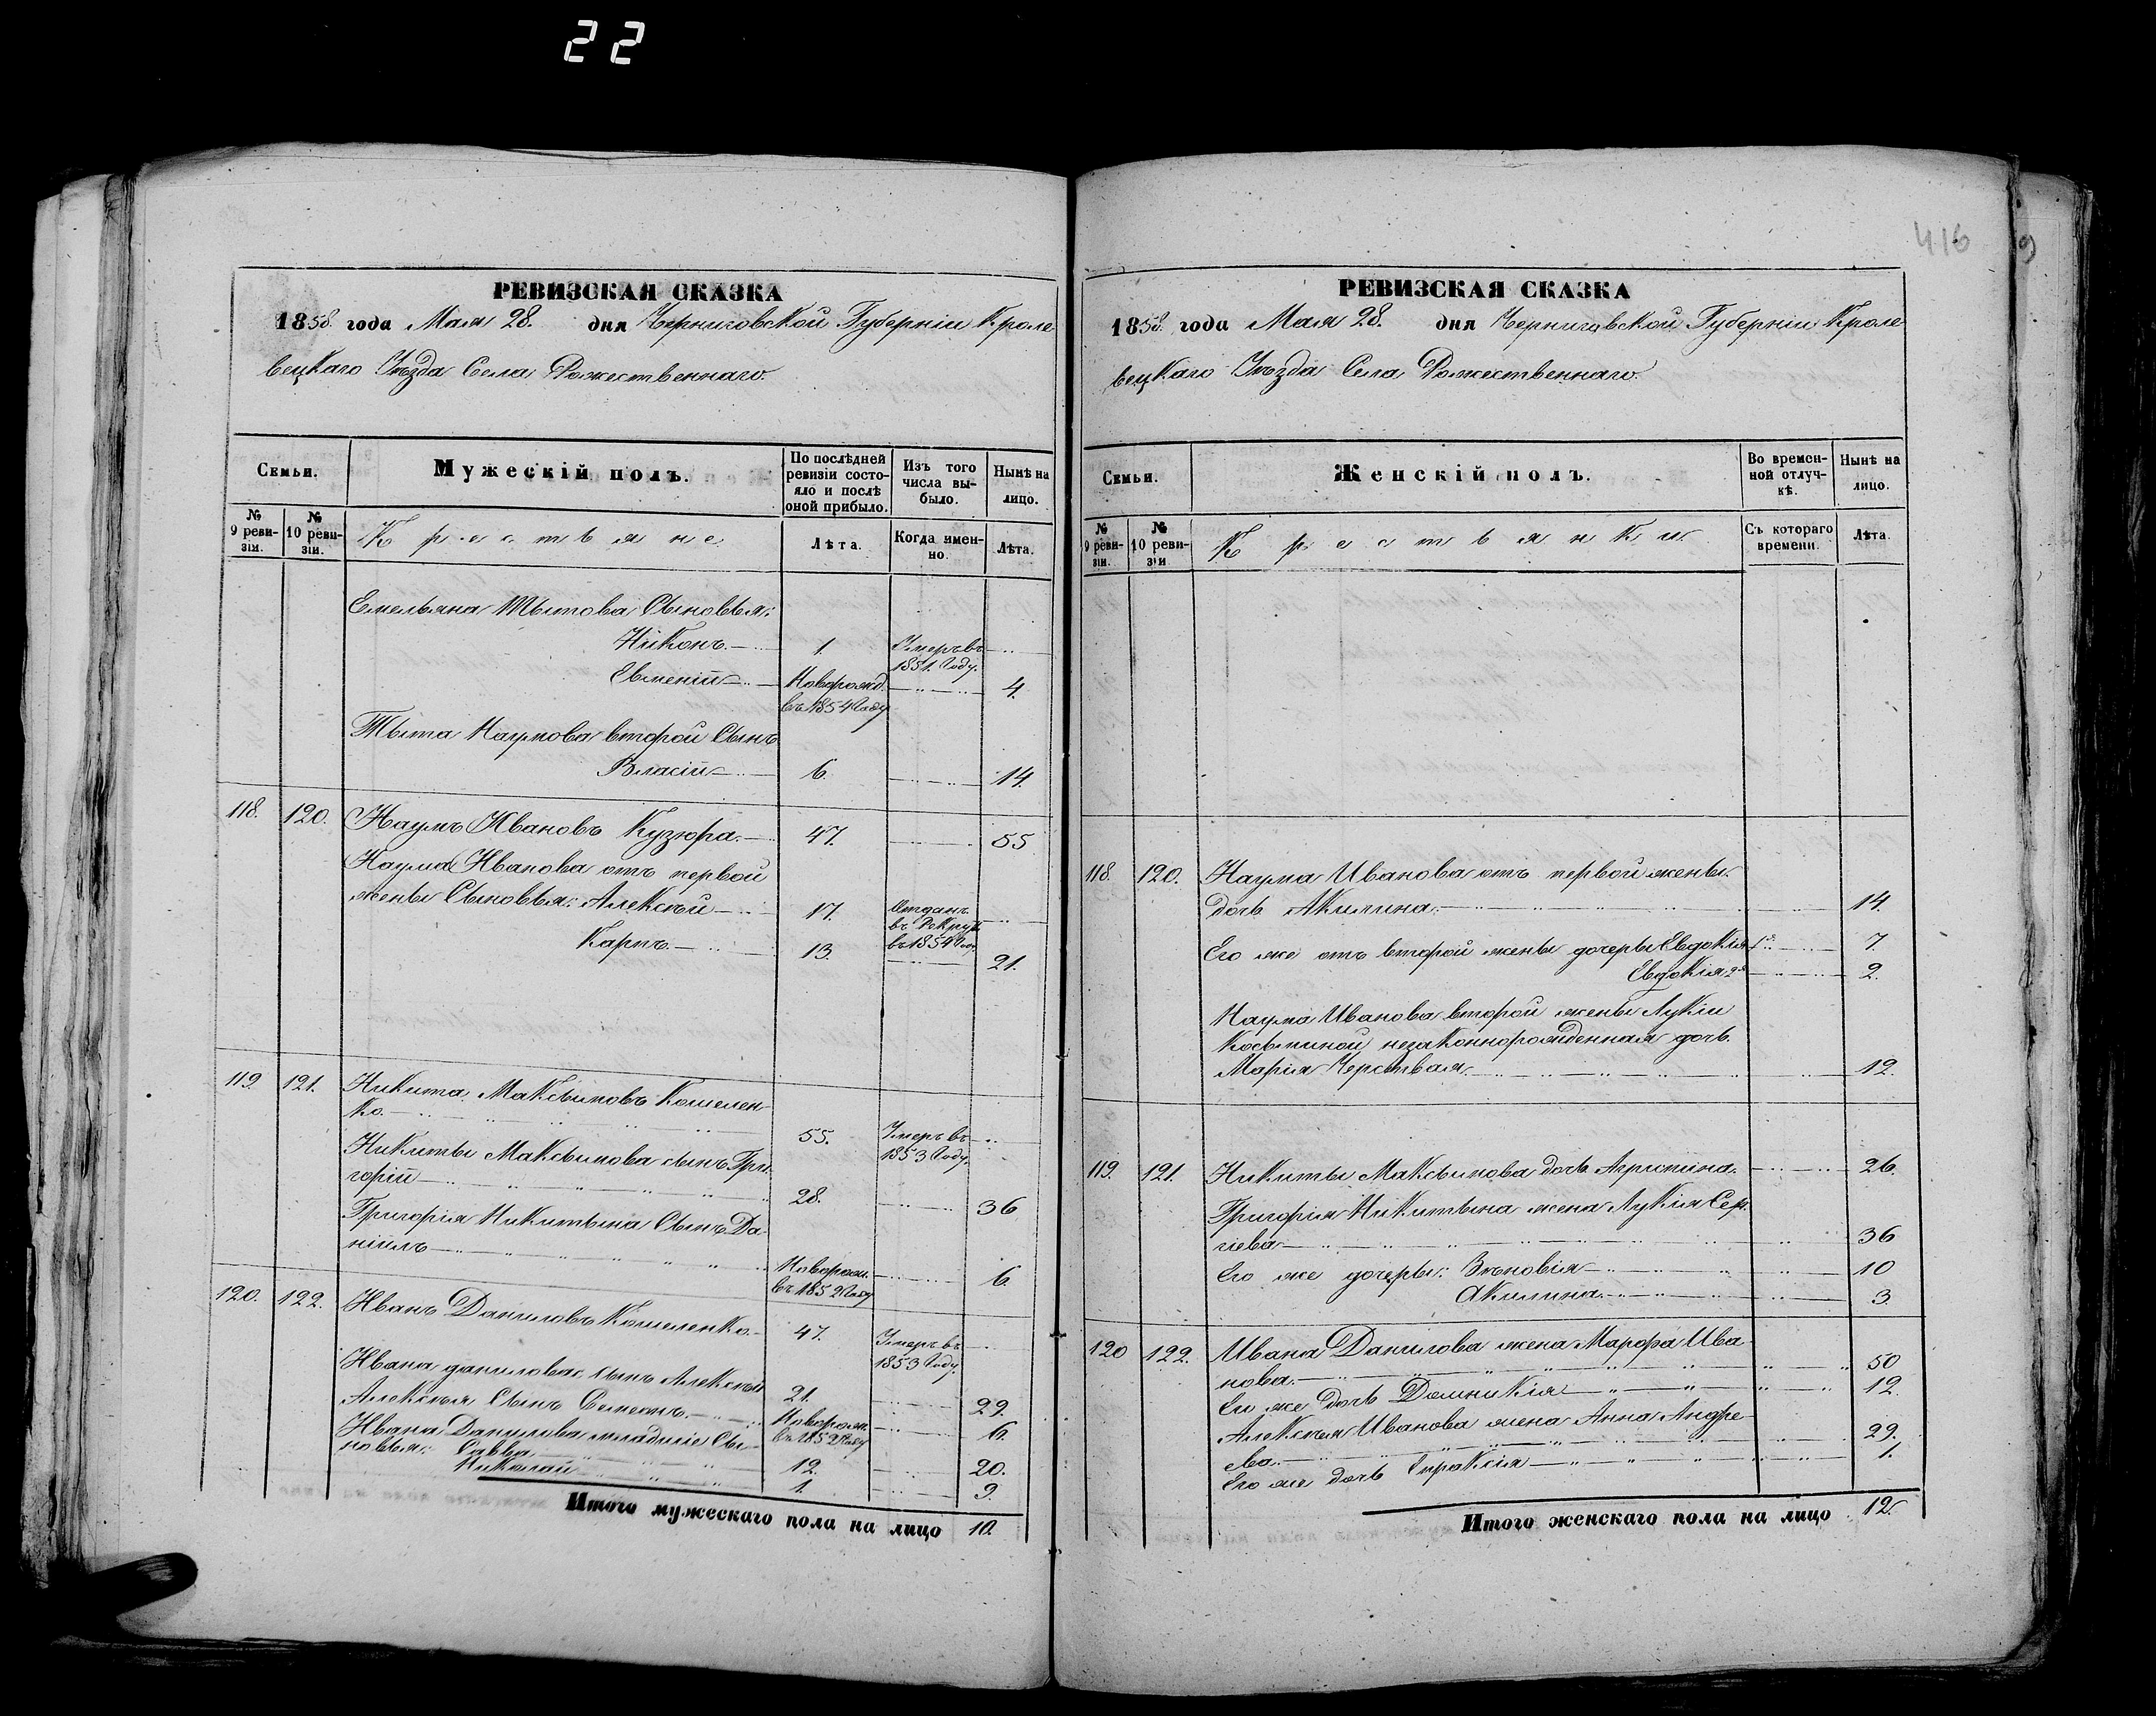 22
РЕВИЗСКАЯ СКАЗКА
1858. года Мая 28. дня Черниговской Губерніи Кроле-
вецкаго Уѣзда Села Рожественнаго.
Семьи.
Мужескій полъ.
По послѣдней ревизіи состояло и послѣ оной прибыло.
Изъ того числа выбыло.
Нынѣ на лицо.
№ 9 реви-зіи.
№ 10 реви-зіи.
Крестьяне
Лѣта.
Когда имен-но.
Лѣта.
Емельяна Тытова Сыновья:
Никонъ. 1. Умеръ въ 1851. Году.
Евменій Новорожд. въ 1854 Году 4.
Тыта Наумова второй Сынъ
Власій 6. 14.
118. 120. Наумъ Ивановъ Кузюра. 47. 55
Наума Иванова отъ первой
жены Сыновья: Алексѣй 17. Отданъ въ Рекруты въ 1854 Году
Карпъ. 13. 21.
119. 121. Никита Максимовъ Кошелен-
ко. 55. Умеръ въ 1853 Году.
Никиты Максимова сынъ Гри-
горій 28. 36
Григорія Никитына Сынъ Да-
ніилъ Новорож. въ 1852 Году 6.
120. 122. Иванъ Даниловъ Кошеленко. 47. Умеръ въ 1853 Году.
Ивана данилова сынъ Алексѣй 21. 29.
Алексѣя Сынъ Семенъ. Новорож. въ 1852 Году 6.
Ивана Данилова младшіе Сы-
новья: Савва 12. 20.
Николай 1. 9.
Итого мужескаго пола на лицо 10.
416
РЕВИЗСКАЯ СКАЗКА
1858. года Мая 28. дня Черниговской Губерніи Кроле-
вецкаго Уѣзда Села Рожественнаго.
Семьи.
Женскій полъ.
Во времен-ной отлуч-кѣ.
Нынѣ на лицо.
№ 9 реви-зіи.
№ 10 реви-зіи
Крестьянки
Съ котораго времени.
Лѣта.
118. 120. Наума Иванова отъ первой жены
дочь Акилина. 14.
Его же отъ второй жены дочеры Евдокія 1я 7.
Евдокія 2я 2.
Наума Иванова второй жены Лукіи
Косьминой незаконнорожденная дочь
Марія Черствая. 12.
119. 121. Никиты Максимова дочь Агрипина. 26.
Григорія Никитына жена Лукія Сер-
гіева 36
Его же дочеры: Зѣновія 10
Акилина 3.
120 122. Ивана Данилова жена Марфа Ива-
нова. 50
Ея же дочь Домникія 12.
Алексѣя Иванова жена Анна Андре-
ева. 29.
Его же дочь Епраксія 1.
Итого женскаго пола на лицо 12.